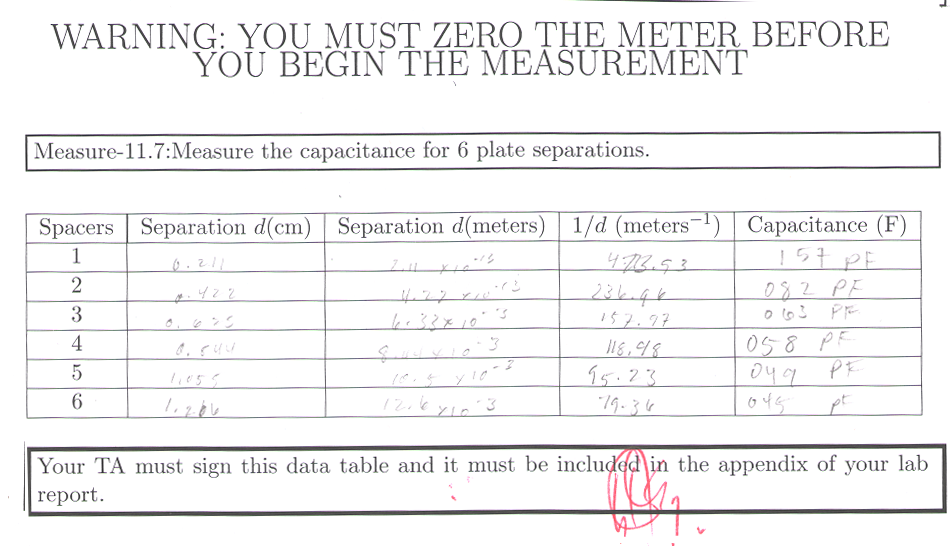 WARNING: YOU MUST ZERO THE METER BEFORE
YOU BEGIN THE MEASUREMENT
Measure-11.7:Measure the capacitance for 6 plate separations.
Spacers Separation d(cm) Separation d(meters) 1/d (meters⁻¹) Capacitance (F)
1 0.211 157 PF
2 0.422 236.96 082 PF
3 6.33×10⁻³ 157.97 063 PF
4 118.48 058 PF
5 95.23 049 PF
6 1.266 12.6 ×10⁻³ 79.36 045 pf
Your TA must sign this data table and it must be included in the appendix of your lab
report.